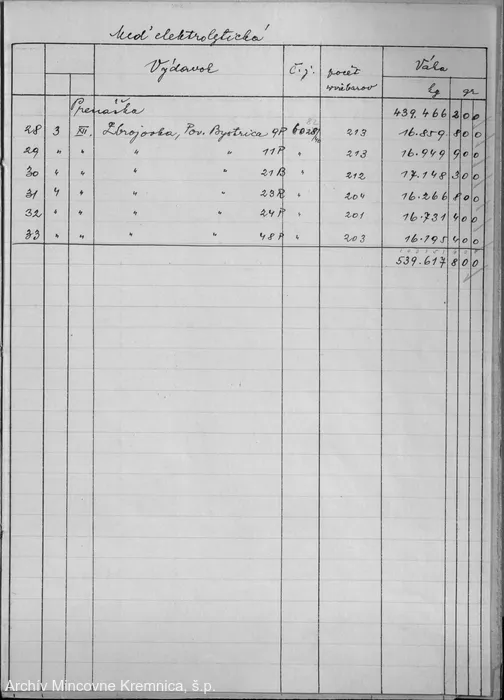 Meď elektrolytická
Výdavok Č.j. počet wirebarov Váha
kg gr
Prenáška 439.466 200
28 3 XII. Zbrojovka, Pov. Bystrica 9P 6028/ 213 16.859 800
29 " " " " 11P " 213 16.949 900
30 " " " " 21B " 212 17.148 300
31 " " " " 23R " 204 16.266 800
32 " " " " 24P " 201 16.731 400
33 " " " " 48P " 203 16.195 400
539.617 800
Archív Mincovne Kremnica, š.p.